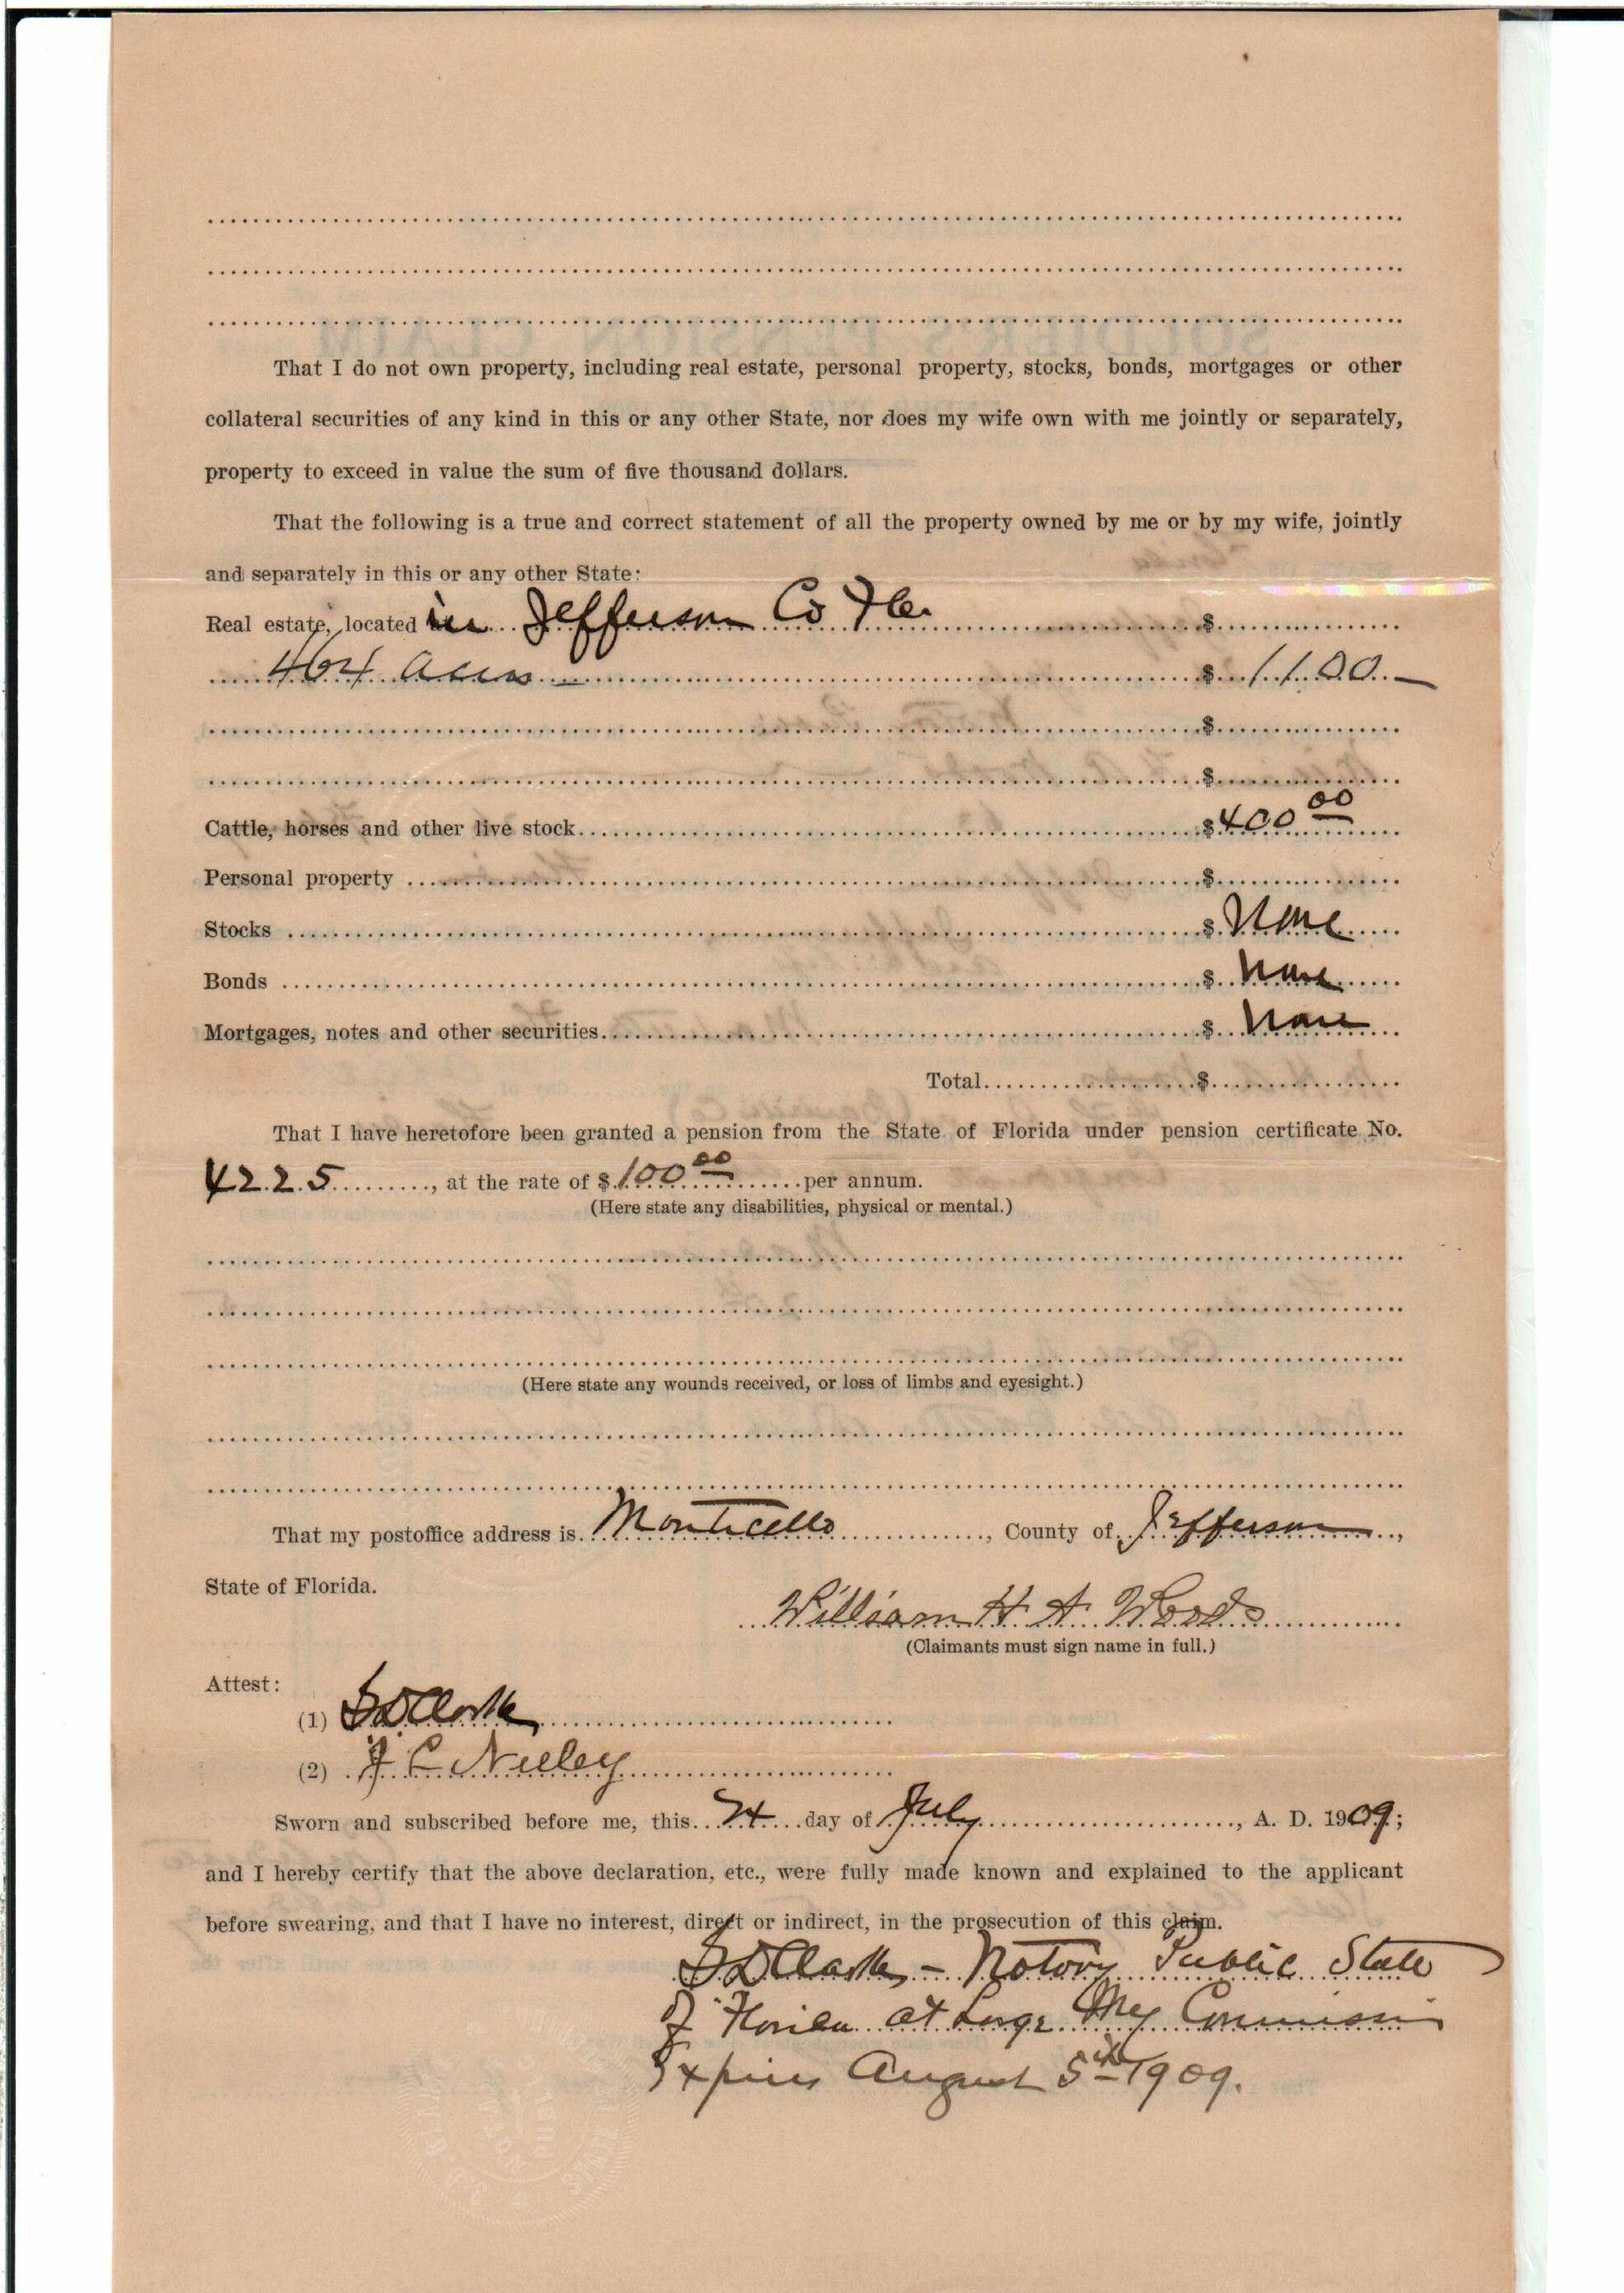 That I do not own property, including real estate, personal property, stocks, bonds, mortgages or other
collateral securities of any kind in this or any other State, nor does my wife own with me jointly or separately,
property to exceed in value the sum of five thousand dollars.
That the following is a true and correct statement of all the property owned by me or by my wife, jointly
and separately in this or any other State:
Real estate, located in Jefferson Co Fla $
464 acres $ 1100
$
$
Cattle, horses and other live stock $ 400 00
Personal property $
Stocks $ None
Bonds $ None
Mortgages, notes and other securities $ None
Total $
That I have heretofore been granted a pension from the State of Florida under pension certificate No.
4225, at the rate of $ 100 00 per annum.
(Here state any disabilities, physical or mental.)
(Here state any wounds received, or loss of limbs and eyesight.)
That my postoffice address is Monticello, County of Jefferson,
State of Florida.
William H A Woods
(Claimants must sign name in full.)
Attest:
(1) Clark
(2) Nulley
Sworn and subscribed before me, this 24 day of July, A. D. 1909;
and I hereby certify that the above declaration, etc., were fully made known and explained to the applicant
before swearing, and that I have no interest, direct or indirect, in the prosecution of this claim.
Clark - Notary Public State
of Florida at Large My Commission
Expires August 5th 1909.